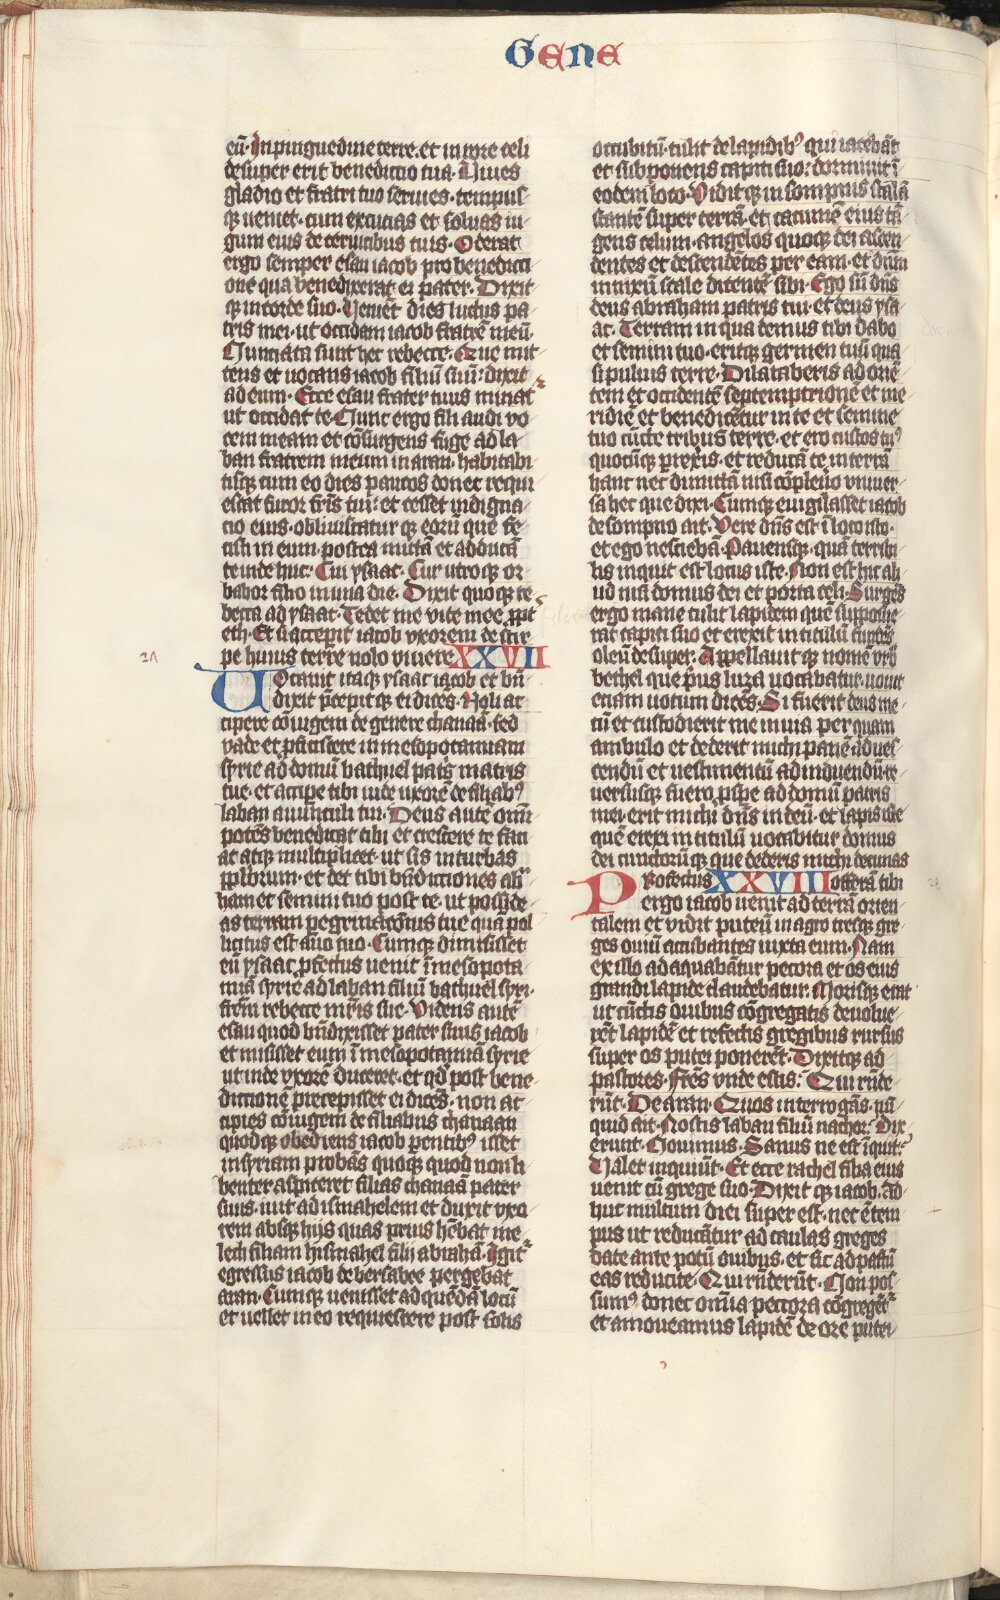 Gene
eū. In pinguedine terre. et in rore celi
desuper erit benedictio tua. Uiues
gladio et fratri tuo seruies. tempus
qꝫ ueniet. cum excutias et soluas iu
gum eius de ceruicibus tuis. Oderat
ergo semper esau iacob pro benedicti
one qua benedixerat ei pater. Dixit
qꝫ in corde suo. Uenient dies luctus pa
tris mei. ut occidam iacob fratrē meū.
Nunciata sunt hec rebecce. Que mit
tens et uocans iacob filiū suū: dixit
ad eum. Ecce esau frater tuus minat᷑
ut occidat te. Nunc ergo fili audi vo
cem meam et cōsurgens fuge ad la
ban fratrem meum in aran. habitabi
tisqꝫ cum eo dies paucos donec requi
escat furor fr̄is tui: et cesset indigna
cio eius. obliuiscatur qꝫ eorū que fe
cisti in eum. postea mittā et adducā
te inde huc. Cur utroqꝫ or
babor filio in una die. Dixit quoqꝫ re
becca ad ysaac. Tedet me vite mee ꝓpt᷑
eth. Et si acceperit iacob vxorem de stir
pe huius terre nolo viuere. XXVII
Uocauit itaqꝫ ysaac iacob et bn̄
dixit p̄cepitqꝫ ei dicēs. Noli ac
cipere cōiugem de genere chanaā. sed
vade et ꝓficiscere in mesopotamiam
syrie ad domū bathuel patris matris
tue. et accipe tibi inde uxorē de filiabꝰ
laban auunculi tui. Deus autē omī
potēs benedicat tibi et crescere te faci
at atqꝫ multiplicet. ut sis in turbas
pplorum. et det tibi bn̄dictiones ab
ham et semini tuo post te. ut posside
as terram peregrinacōnis tue quā pol
licitus est auo tuo. Cumqꝫ dimisisset
eū ysaac. ꝓfectus uenit ī mesopota
miā syrie ad laban filiū bathuel syri.
fr̄em rebecce mr̄is sue. Videns autē
esau quod bn̄dixisset pater suus iacob
et misisset eum ī mesopotamiā syrie
ut inde vxorē duceret. et qđ post bene
dictionē precepisset ei dicēs. non ac
cipies cōiugem de filiabus chanaan
quodqꝫ obediens iacob parentibꝰ isset
in syriam probās quoqꝫ quod non li
benter aspiceret filias chanaā pater
suus. iuit ad ismahelem et duxit vxo
rem absqꝫ hijs quas prius hēbat me
lech filiam hismahel filij abrahā. Igit᷑
egressus iacob de bersabee pergebat
aran. Cumqꝫ uenisset ad quēdā locū
et uellet in eo requiescere post solis
occubitū. tulit de lapidibꝰ qui iacebāt
et subponens capiti suo: dormiuit ī
eodem loco. Viditqꝫ in sompnis scalā
stantē super terrā. et cacumē eius tā
gens celum. angelos quoqꝫ dei ascen
dentes et descendētes per eam. et dn̄m
innixū scale dicentē sibi. Ego sū dn̄s
deus abraham patris tui. et deus ysa
ac. Terram in qua dormis tibi dabo
et semini tuo. eritqꝫ germen tuū qua
si puluis terre. Dilataberis ad oriē
tem et occidentē septemptrionē et me
ridiē et benedicētur in te et semine
tuo cūcte tribus terre. et ero custos tuꝰ
quocūqꝫ prexeris. et reducā te in terrā
hanc nec dimittā nisi cōpleuero vniuer
sa hec que dixi. Cumqꝫ euigilasset iacob
de sompno ait. Vere dn̄s est ī loco isto.
et ego nesciebā. Pauensqꝫ. quā terribi
lis inquit est locus iste. Non est hic ali
ud nisi domus dei et porta celi. Surgēs
ergo mane tulit lapidem quē supposue
rat capiti suo et erexit in titulū fundēs
oleū desuper. Appellauitqꝫ nomē vrb
bethel que prius luza uocabatur. uouit
etiam uotum dicēs. Si fuerit deus me
cū et custodierit me in uia per quam
ambulo et dederit michi panē ad ues
cendū et uestimentū ad induendū. re
uersusqꝫ fuero ꝓspe ad domū patris
mei. erit michi dn̄s in deū. et lapis iste
quē erexi in titulū uocabitur domus
dei cunctorūqꝫ que dederis michi decimas
Profectus XXVIII offerā tibi
ergo iacob uenit ad terrā orien
talem et vidit puteū in agro tresqꝫ gre
ges ouiū accubantes iuxta eum. Nam
ex illo adaquabātur pecora et os eius
grandi lapide claudebatur. Morisqꝫ erat
ut cūctis ouibus cōgregatis deuolue
rēt lapidē et refectis gregibus rursus
super os putei ponerēt. Dixitqꝫ ad
pastores. Fr̄es vnde estis: Qui rn̄de
rūt. De aran. Quos interrogās. nū
quid ait. Nostis laban filiū nachor. Dix
erunt. Nouimus. Sanus ne est īquit:
Ualet inquiūt. Et ecce rachel filia eius
uenit cū grege suo. Dixitqꝫ iacob. Ad
huc multum diei super est. nec ē tem
pus ut reducātur ad caulas greges
date ante potū ouibus. et sic ad pastū
eas reducite. Qui rn̄derūt. Non pos
sumꝰ donec omnia peccora cōgregēt᷑
et amoueamus lapidē de ore putei